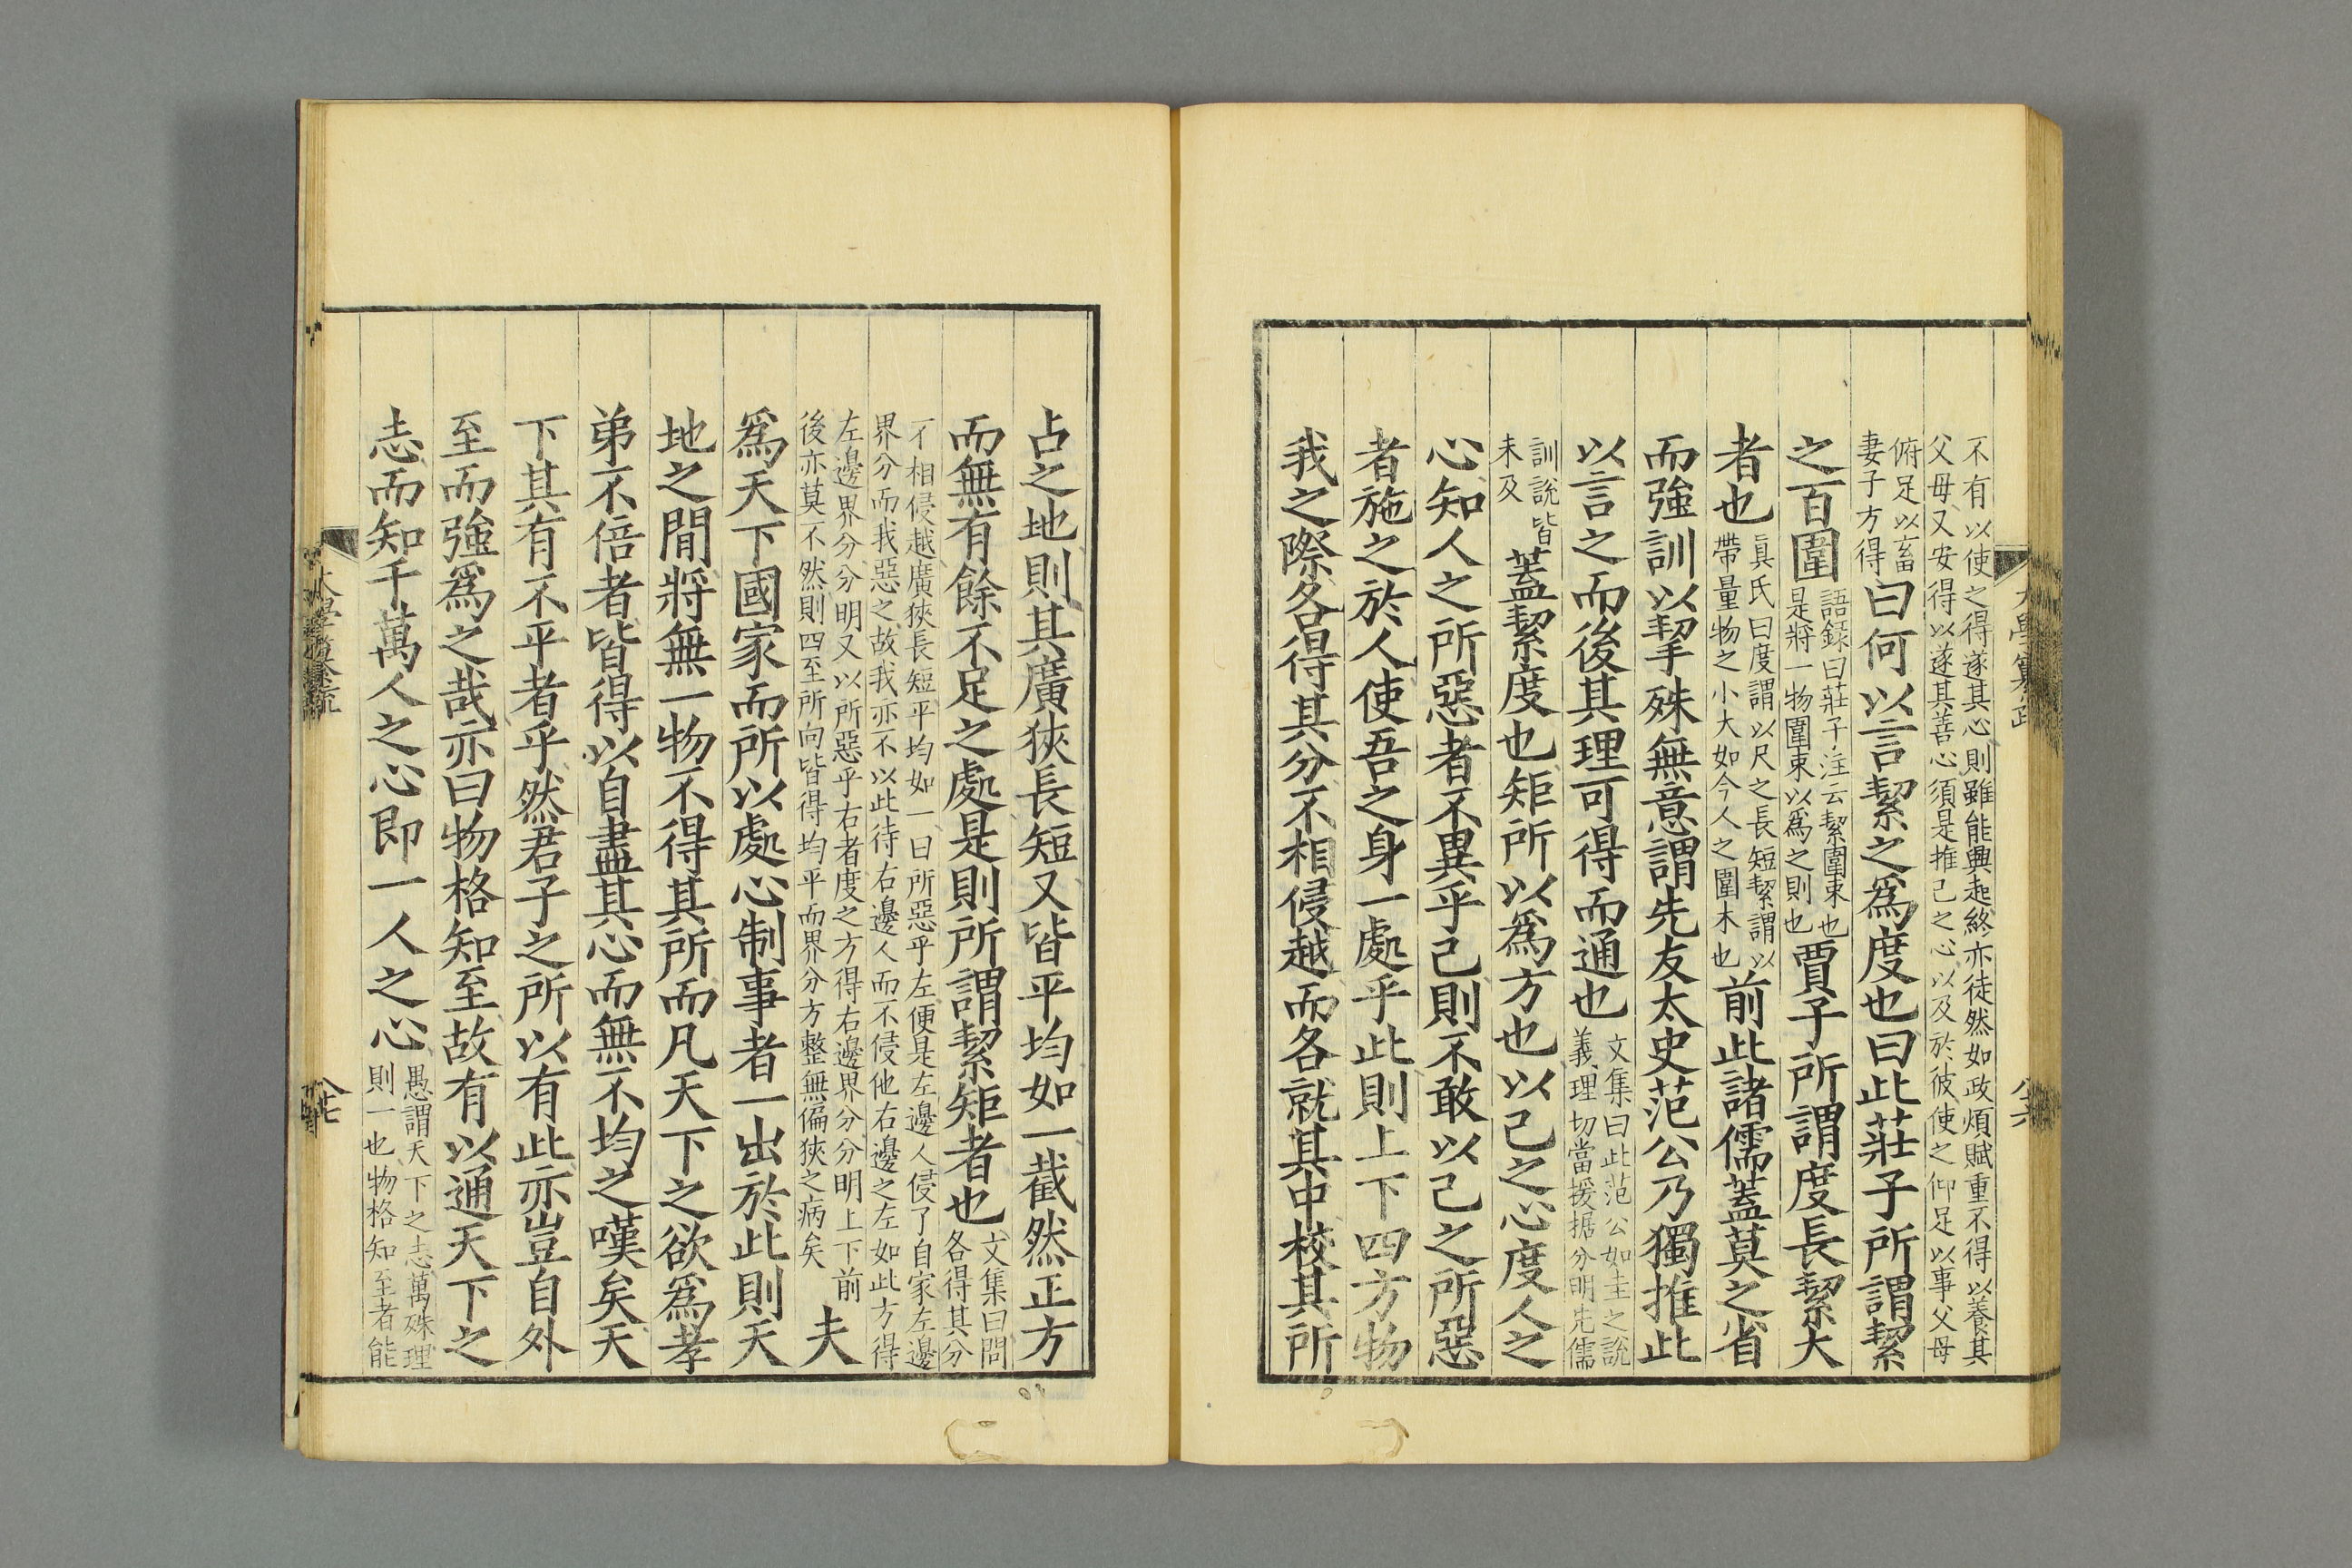 不有以使之得遂其心則雖能興起終亦徒然如政煩賦重不得以養其
父母又安得以遂其善心須是推己之心以及於彼使之仰足以事父母
俯足以畜妻子方得曰何以言絜之爲度也曰此莊子所謂絜
之百圍語録曰莊子注云絜圍束也是將一物圍束以爲之則也賈子所謂度長絜大
者也眞氏曰度謂以尺之長短絜謂以帶量物之小大如今人之圍木也前此諸儒蓋莫之省
而強訓以挈殊無意謂先友太史范公乃獨推此
以言之而後其理可得而通也文集曰此范公如圭之說義理切當援据分明先儒
訓說皆未及蓋絜度也矩所以爲方也以己之心度人之
心知人之所惡者不異乎己則不敢以己之所惡
者施之於人使吾之身一處乎此則上下四方物
我之際各得其分不相侵越而各就其中校其所
占之地則其廣狹長短又皆平均如一截然正方
而無有餘不足之處是則所謂絜矩者也文集曰問各得其分
不相侵越廣狹長短平均如一曰所惡乎左便是左邊人侵了自家左邊
界分而我惡之故我亦不以此待右邊人而不侵他右邊之左如此方得
左邊界分分明又以所惡乎右者度之方得右邊界分分明上下前
後亦莫不然則四至所向皆得均平而界分方整無偏狹之病矣夫
爲天下國家而所以處心制事者一出於此則天
地之間將無一物不得其所而凡天下之欲爲孝
弟不倍者皆得以自盡其心而無不均之嘆矣天
下其有不平者乎然君子之所以有此亦豈自外
至而強爲之哉亦曰物格知至故有以通天下之
志而知千萬人之心即一人之心愚謂天下之志萬殊理則一也物格知至者能
大學纂疏
八七